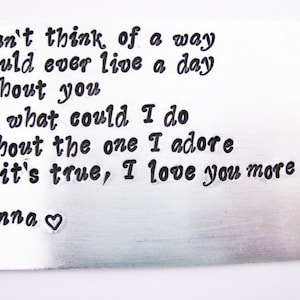 think of a way
ever live a day
you
what could I do
the one I adore
it's true, I love you more